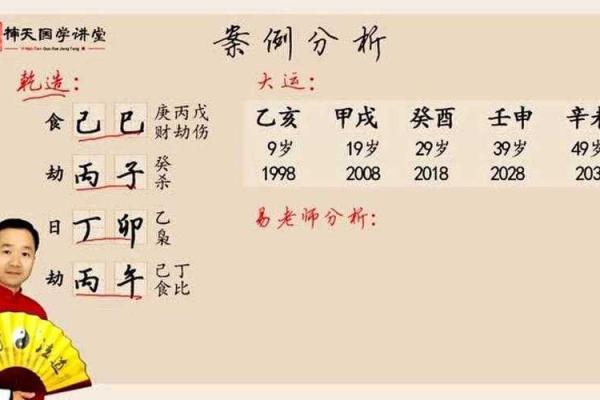 楠天国学讲堂
案例分析
乾造：
食 己 巳 庚 丙 戊
财 劫 伤
劫 丙 子 癸
杀
日 丁 卯 乙
枭
劫 丙 午 己 丁
食 比
大运：
乙亥 甲戌 癸酉 壬申 辛未
9岁 19岁 29岁 39岁 49岁
1998 2008 2018 2028 203
易老师分析：